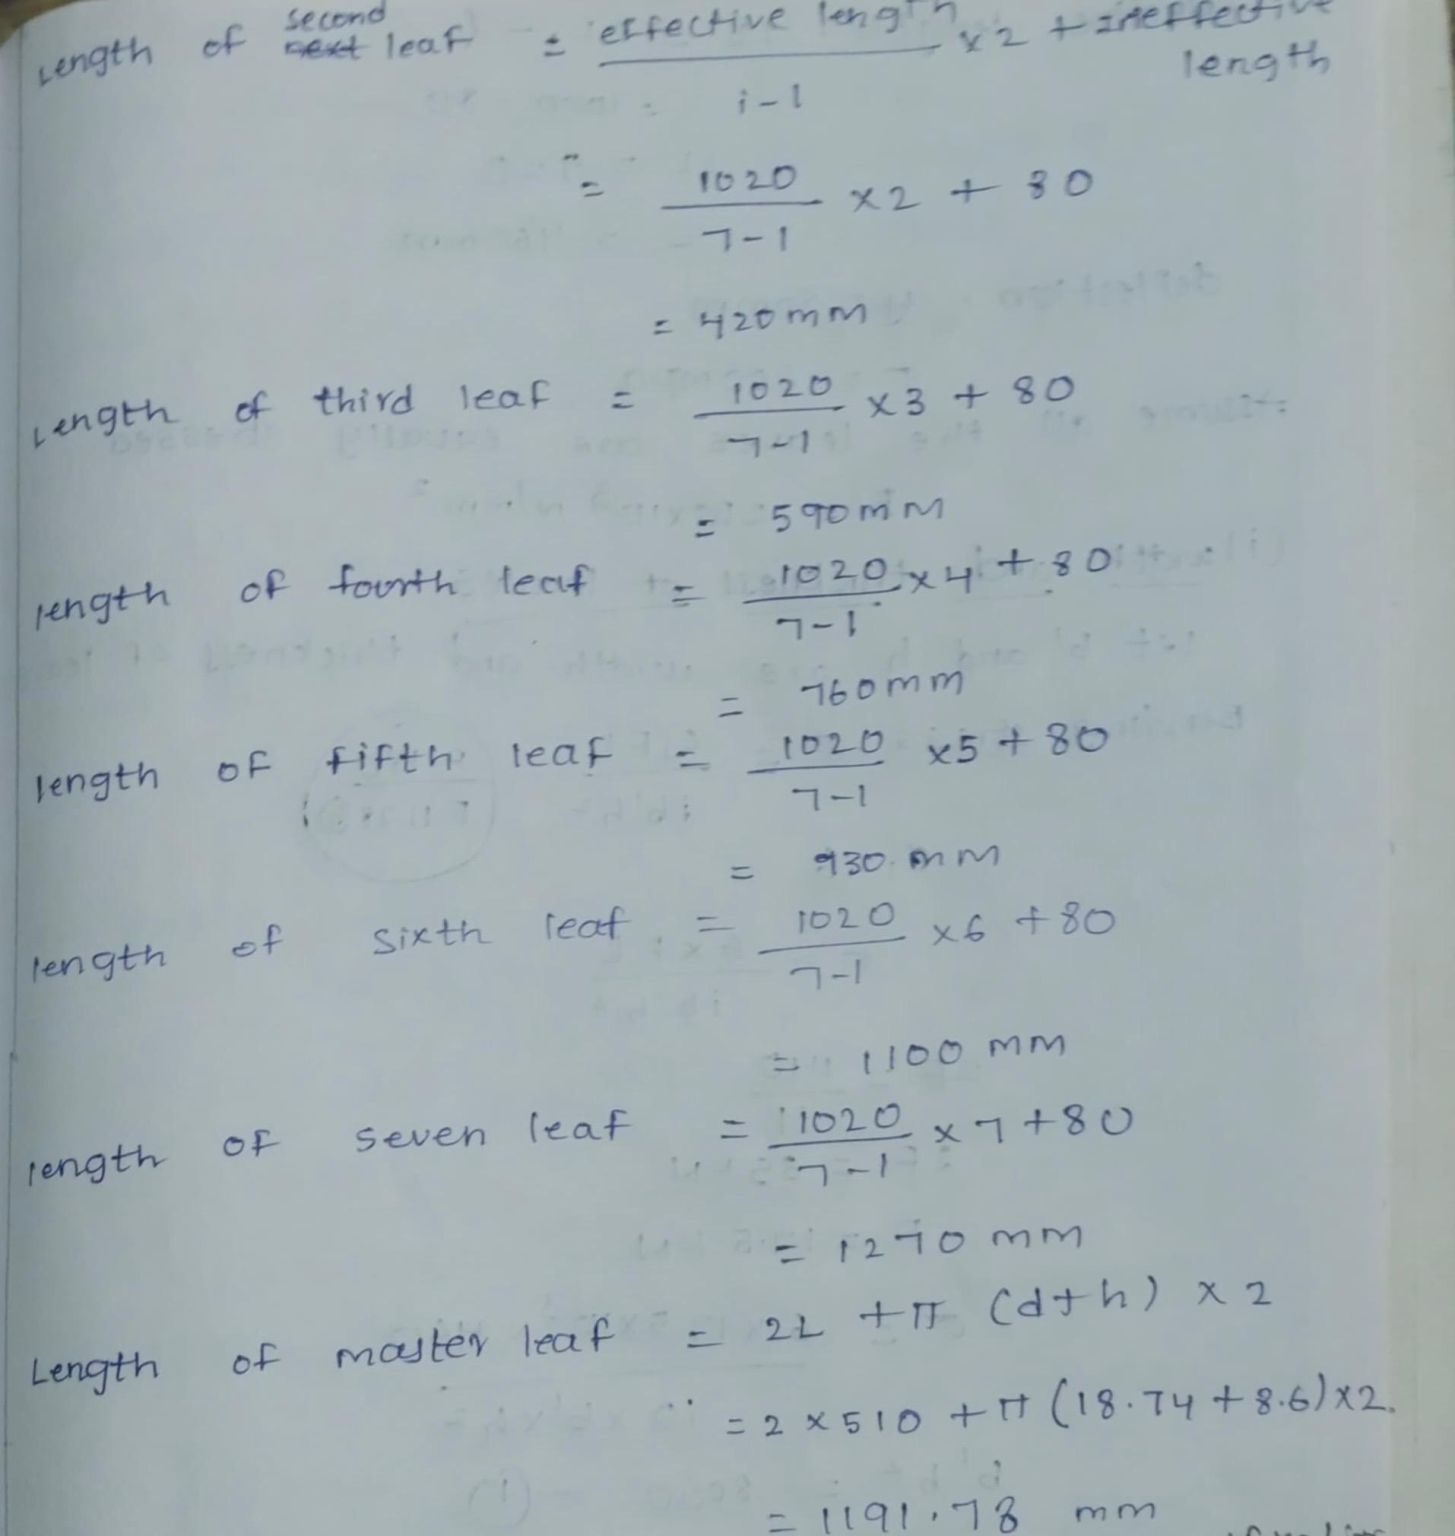 second
Length of next leaf = effective length x2 + ineffective
length
i-1
= 1020 x2 + 80
7-1
= 420mm
Length of third leaf = 1020 x3 + 80
7-1
= 590mm
length of fourth leaf = 1020 x4 + 80
7-1
= 760mm
length of fifth leaf = 1020 x5 + 80
7-1
= 930 mm
length of sixth leaf = 1020 x6 + 80
7-1
= 1100 mm
length of seven leaf = 1020 x7 + 80
7-1
= 1270 mm
Length of master leaf = 2L + π (d+h) x 2
= 2 x 510 + π (18.74 + 8.6) x2.
= 1191.78 mm